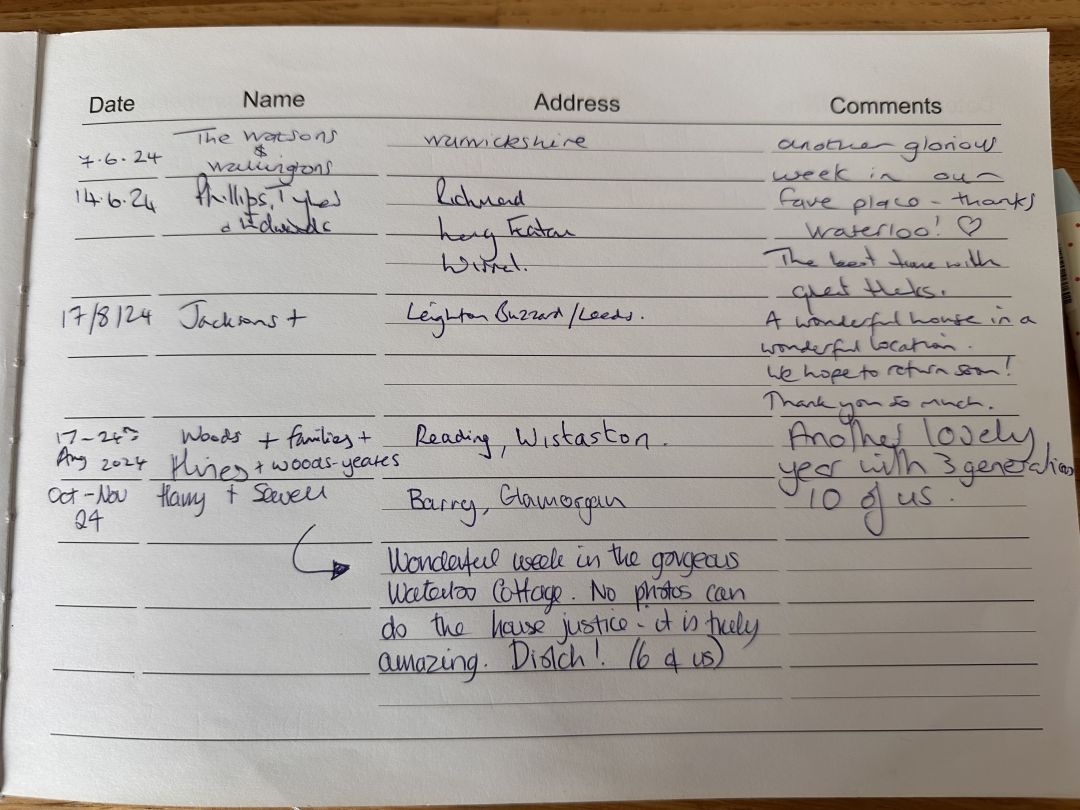 Date Name Address Comments
The Watsons
&
7.6.24 Wallingtons Warwickshire another glorious
week in our
fave place - thanks
Waterloo! ♡
14.6.24 Phillips, Tyles Richmond
& Edwards Long Eaton
Wirral.
The best time with
great
17/8/24 Jacksons + Leighton Buzzard/Leeds. A wonderful house in a
wonderful location.
We hope to return soon!
Thank you so much.
17-24th Woods + families + Reading, Wistaston. Another lovely
Aug 2024 Hines + woods-yeates year with 3 generations
10 of us.
Oct-Nov Harry + Sewell Barry, Glamorgan
24
Wonderful week in the gorgeous
Waterloo Cottage. No photos can
do the house justice - it is truly
amazing. Diolch! (6 of us)